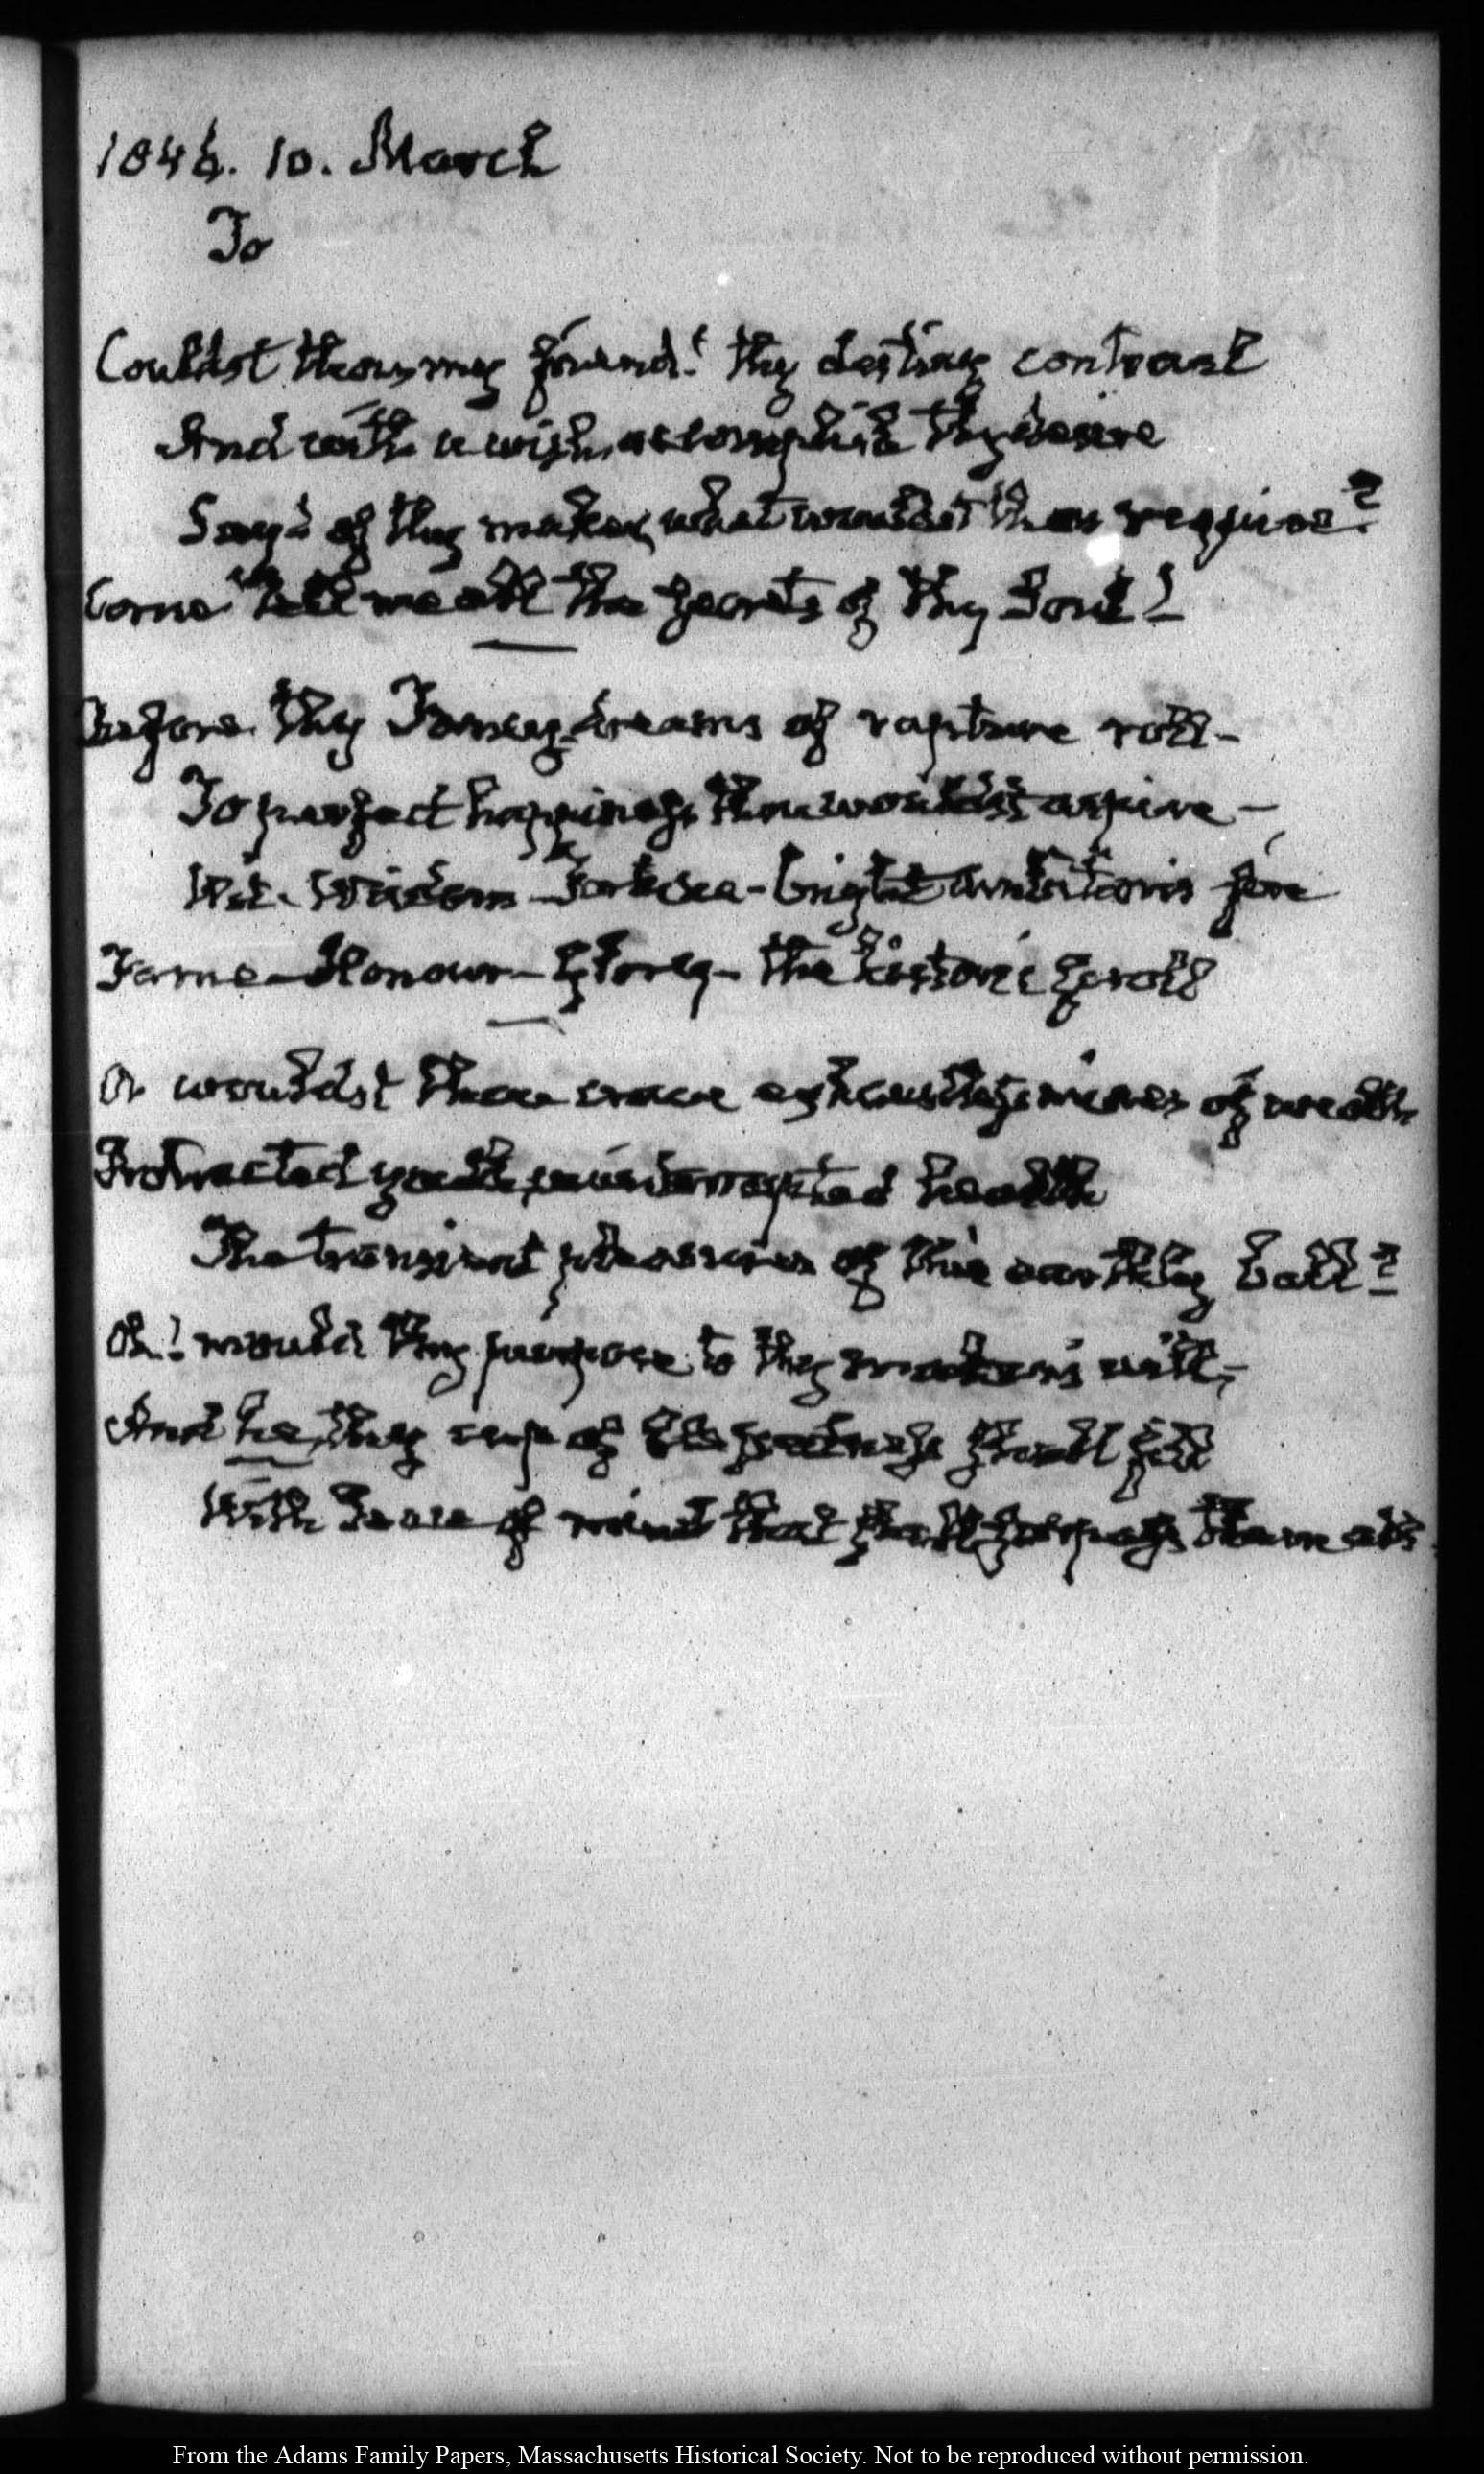 1846. 10. March
To
Couldst thou, my friend! thy destiny control
And with a wish, accomplish thy desire
Say! of thy maker, what wouldst thou require?
Come tell me all the secrets of thy Soul!
Before thy Fancy dreams of rapture roll—
To perfect happiness thou wouldst aspire—
Wit—Wisdom—Fortune—bright ambition's fire
Fame—Honour—Glory—the historic scroll
Or wouldst thou crave exhaustless mines of wealth
Protracted youth, uninterrupted health
The transient pleasures of this earthly ball?
Oh! mould thy purpose to thy maker's will,
And he, thy cup of blessedness shall fill
With Peace of mind that shall surpass them all.
From the Adams Family Papers, Massachusetts Historical Society. Not to be reproduced without permission.